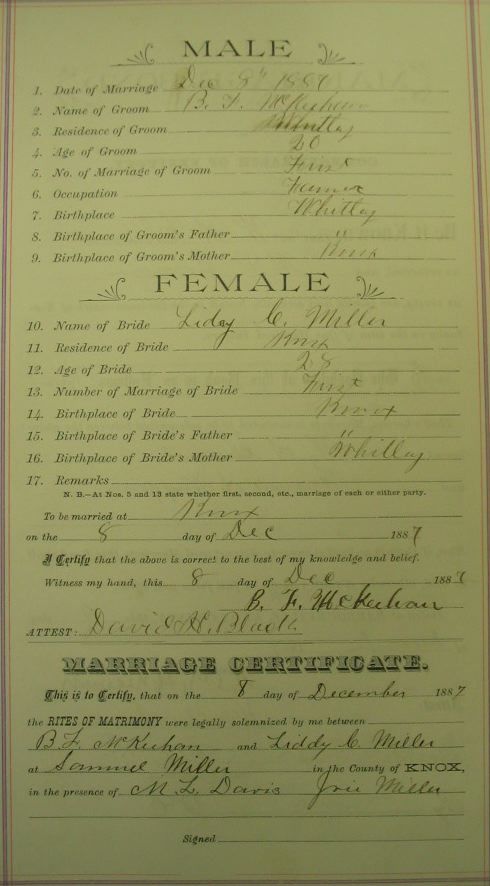 MALE
1. Date of Marriage Dec 8th 1887
2. Name of Groom B. F. McKeehan
3. Residence of Groom Whitley
4. Age of Groom 20
5. No. of Marriage of Groom First
6. Occupation Farmer
7. Birthplace Whitley
8. Birthplace of Groom's Father "
9. Birthplace of Groom's Mother Knox
FEMALE
10. Name of Bride Liddy C. Miller
11. Residence of Bride Knox
12. Age of Bride 28
13. Number of Marriage of Bride First
14. Birthplace of Bride Knox
15. Birthplace of Bride's Father "
16. Birthplace of Bride's Mother Whitley
17. Remarks
N. B.—At Nos. 5 and 13 state whether first, second, etc., marriage of each or either party.
To be married at Knox
on the 8 day of Dec 1887
I Certify that the above is correct to the best of my knowledge and belief.
Witness my hand, this 8 day of Dec 1887
B. F. McKeehan
ATTEST: David H.
MARRIAGE CERTIFICATE.
This is to Certify, that on the 8 day of December 1887
the RITES OF MATRIMONY were legally solemnized by me between
B. F. McKeehan and Liddy C. Miller
at Samuel Miller in the County of KNOX,
in the presence of M. L. Davis Miller
Signed